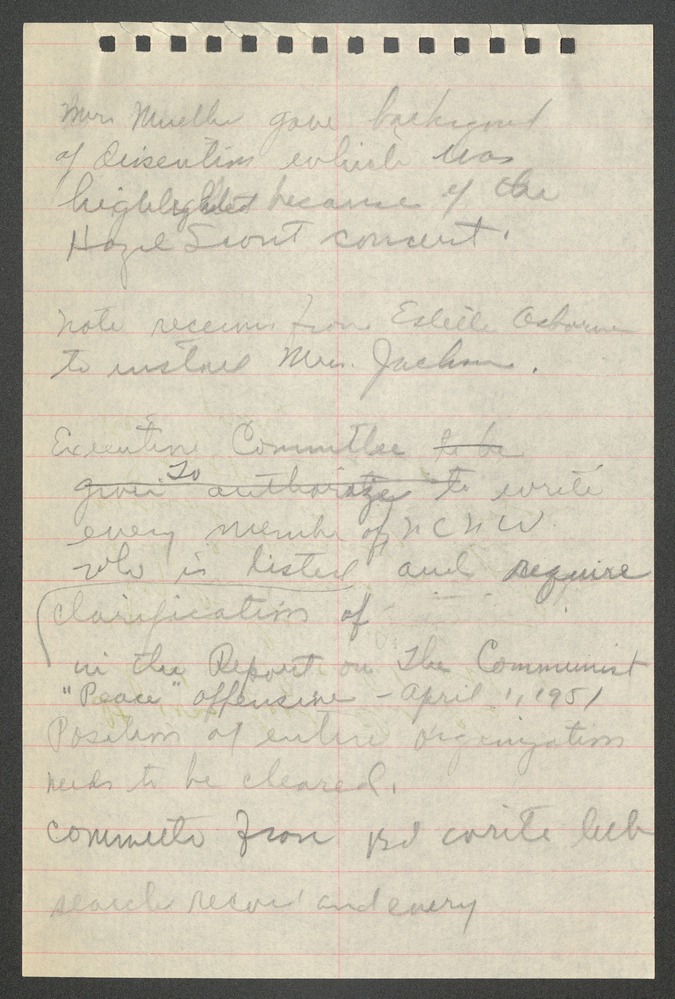 Mrs Mueller gave background
of dissention which was
highlighted because of the
Hazel Scott concert.
note received from Estelle Osborne
to instruct Mrs. Jackson.
Executive Committee to be
given To authorize to write
every member of NCNW
who is listed and require
clarification of
in the Report on The Communist
"Peace" offensive - April 1, 1951
Position of entire organization
needs to be cleared.
committee from write
search record and every